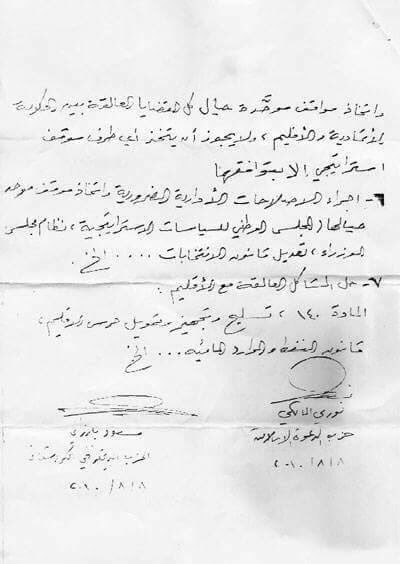 واتخاذ مواقف موحّدة حيال كل القضايا العالقة بين الحكومة
الاتحادية والأقليم ، ولا يجوز أن يتخذ أي طرف موقف
استراتيجي إلا بتوافقهما
٦- اجراء الاصلاحات الأدارية الضرورية واتخاذ موقف موحد
حيالها ( المجلس الوطني للسياسات الاستراتيجية ، نظام مجلس
الوزراء ، تعديل قانون الانتخابات .... الخ .
٧- حل المشاكل العالقة مع الأقليم :
المادة ١٤٠ ، تسليح وتجهيز وتمويل حرس الاقليم ،
قانون النفط والموارد المائية ... الخ
نوري المالكي
حزب الدعوة الاسلامية
٢٠١٠/٨/٨
مسعود بارزاني
الحزب الديمقراطي الكوردستاني
٢٠١٠/٨/٨